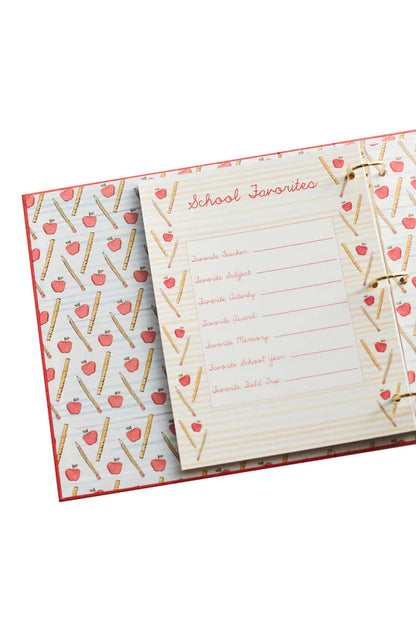 School Favorites
Favorite Teacher:
Favorite Subject:
Favorite Activity:
Favorite Award:
Favorite Memory:
Favorite School Year:
Favorite Field Trip: